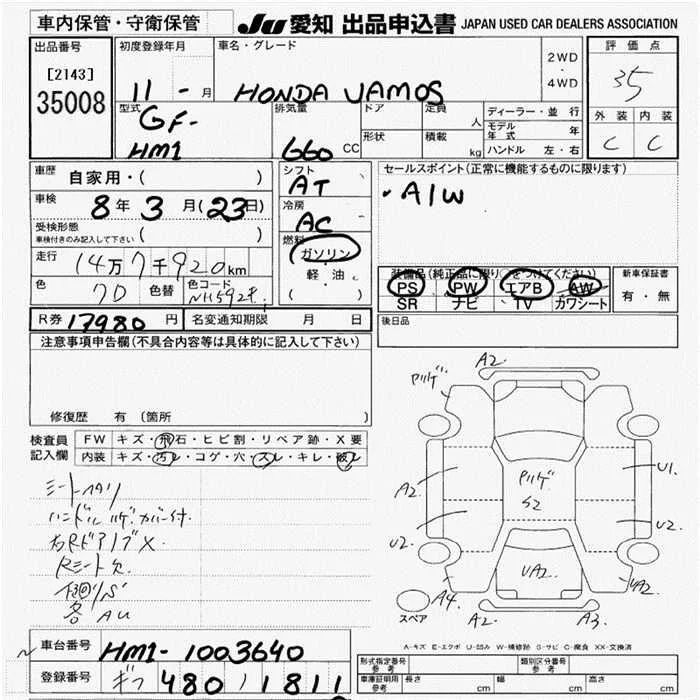 車内保管・守衛保管
JU 愛知 出品申込書 JAPAN USED CAR DEALERS ASSOCIATION
出品番号
[2143]
35008
初度登録年月
11 - 月
車名・グレード
HONDA VAMOS
2WD
4WD
評価点
35
外装 内装
C C
型式
GF-
HM1
排気量
660 CC
ドア
形状
定員 人
積載 kg
ディーラー・並行
モデル年式 年
ハンドル 左・右
車歴
自家用・( )
車検
8年 3月(23日)
受検形態
車検付きのみ記入して下さい ( )
走行
14万7千920km
色 色替 色コード
シフト
AT
冷房
AC
燃料
ガソリン
軽油
( )
セールスポイント(正常に機能するものに限ります)
・A/W
装備品(純正品に限り○をつけてください)
PS PW エアB AW
SR ナビ TV カワシート
新車保証書
有・無
R券 17980 円 名変通知期限 月 日
後日品
注意事項申告欄(不具合内容等は具体的に記入して下さい)
修復歴 有 (箇所 )
検査員
記入欄
FW キズ・飛石・ヒビ割・リペア跡・X要
内装 キズ・汚レ・コゲ・穴・スレ・キレ・破レ
A2
A2.
U1.
S2
U2.
U2
UA2
UA2.
A4.
A2
A3.
スペア
A-キズ E-エクボ U-凹み W-補修跡 S-サビ C-腐食 XX-交換済
車台番号
HM1-1003640
登録番号
480 1811
形式指定番号
参考
類別区分番号
参考
車庫証明用
参考
長さ cm 幅 cm 高さ cm